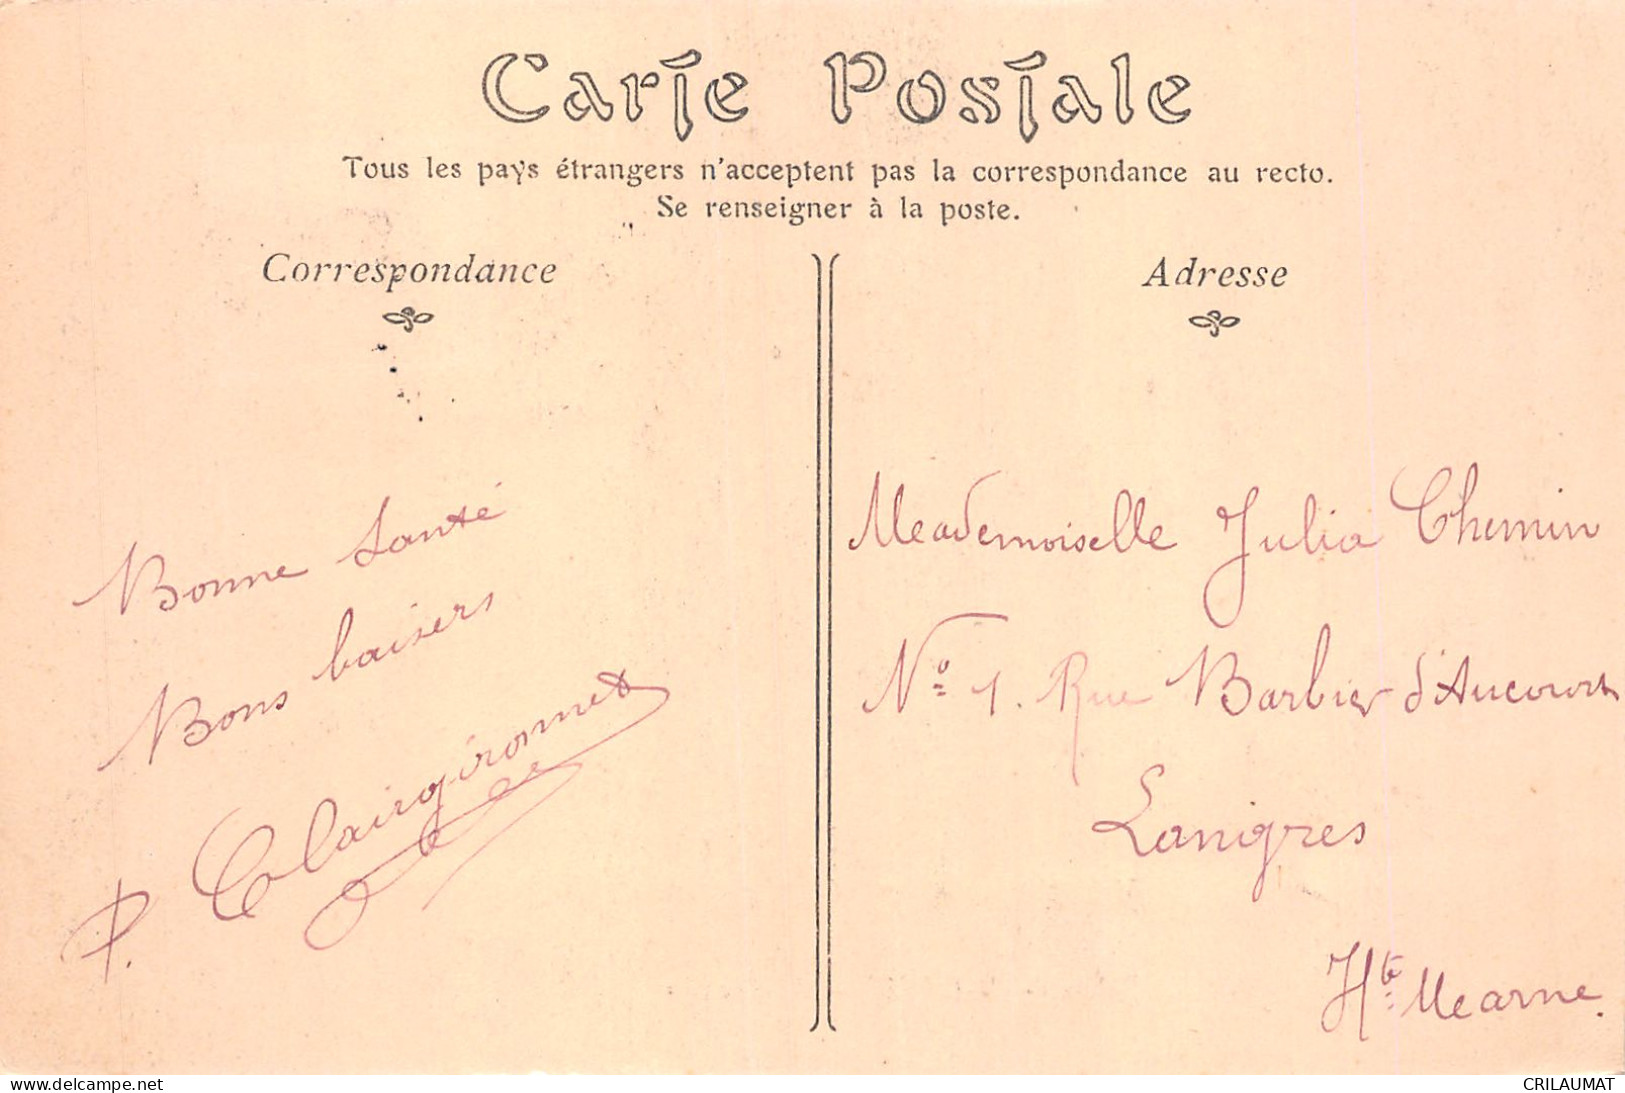 Carte Postale
Tous les pays étrangers n'acceptent pas la correspondance au recto.
Se renseigner à la poste.
Correspondance
Bonne Santé
Bons baisers
P. Clairgironnet
Adresse
Mademoiselle Julia Chemin
N° 1. Rue Barbier d'Aucourt
Langres
Hte Marne.
delcampe.net
CRILAUMAT